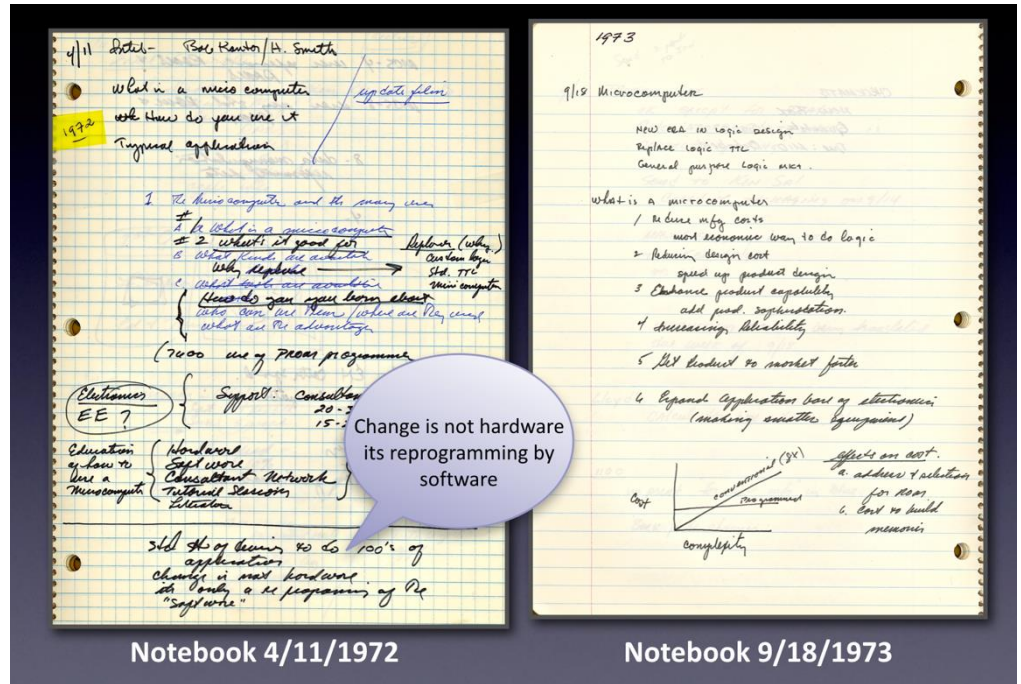 4/11 Intel- Bob Kantor/H. Smith
What is a micro computer
update film
1972
How do you use it
Typical application
1 The Microcomputer and the many uses
#
A What is a microcomputer
# 2 what's it good for
Replaces (why.)
B What Kinds are available
Custom logic
why replace
Std. TTC
C. What tools are available
mini computer
How do you learn about
who can use them / where are they used
what are the advantages
(7400 use of PROM programmer
Electronics
EE ?
Support: Consultan
20-3
15-2
Education
of how to
use a
Microcomputer
Hardware
Software
Consultant Network
Tutorial Sessions
Literature
Change is not hardware
its reprogramming by
software
std of devices to do 100's of
application
change is not hardware
its only a re programing of the
"software"
Notebook 4/11/1972
1973
9/18 Microcomputer
New era in logic design
Replace logic TTC
General purpose logic
What is a microcomputer
1 Reduce mfg costs
most economic way to do logic
2 Reducing design cost
speed up product design
3 Enhance product capability
add prod. sophistication.
4 Increasing Reliability
5 Get Product to market faster
6 Expand application base of electronics
(making smarter equipment)
Cost
CONVENTIONAL
Programmed
complexity
effects on cost.
a. address & selection
for ROM
b. cost to build
memories
Notebook 9/18/1973